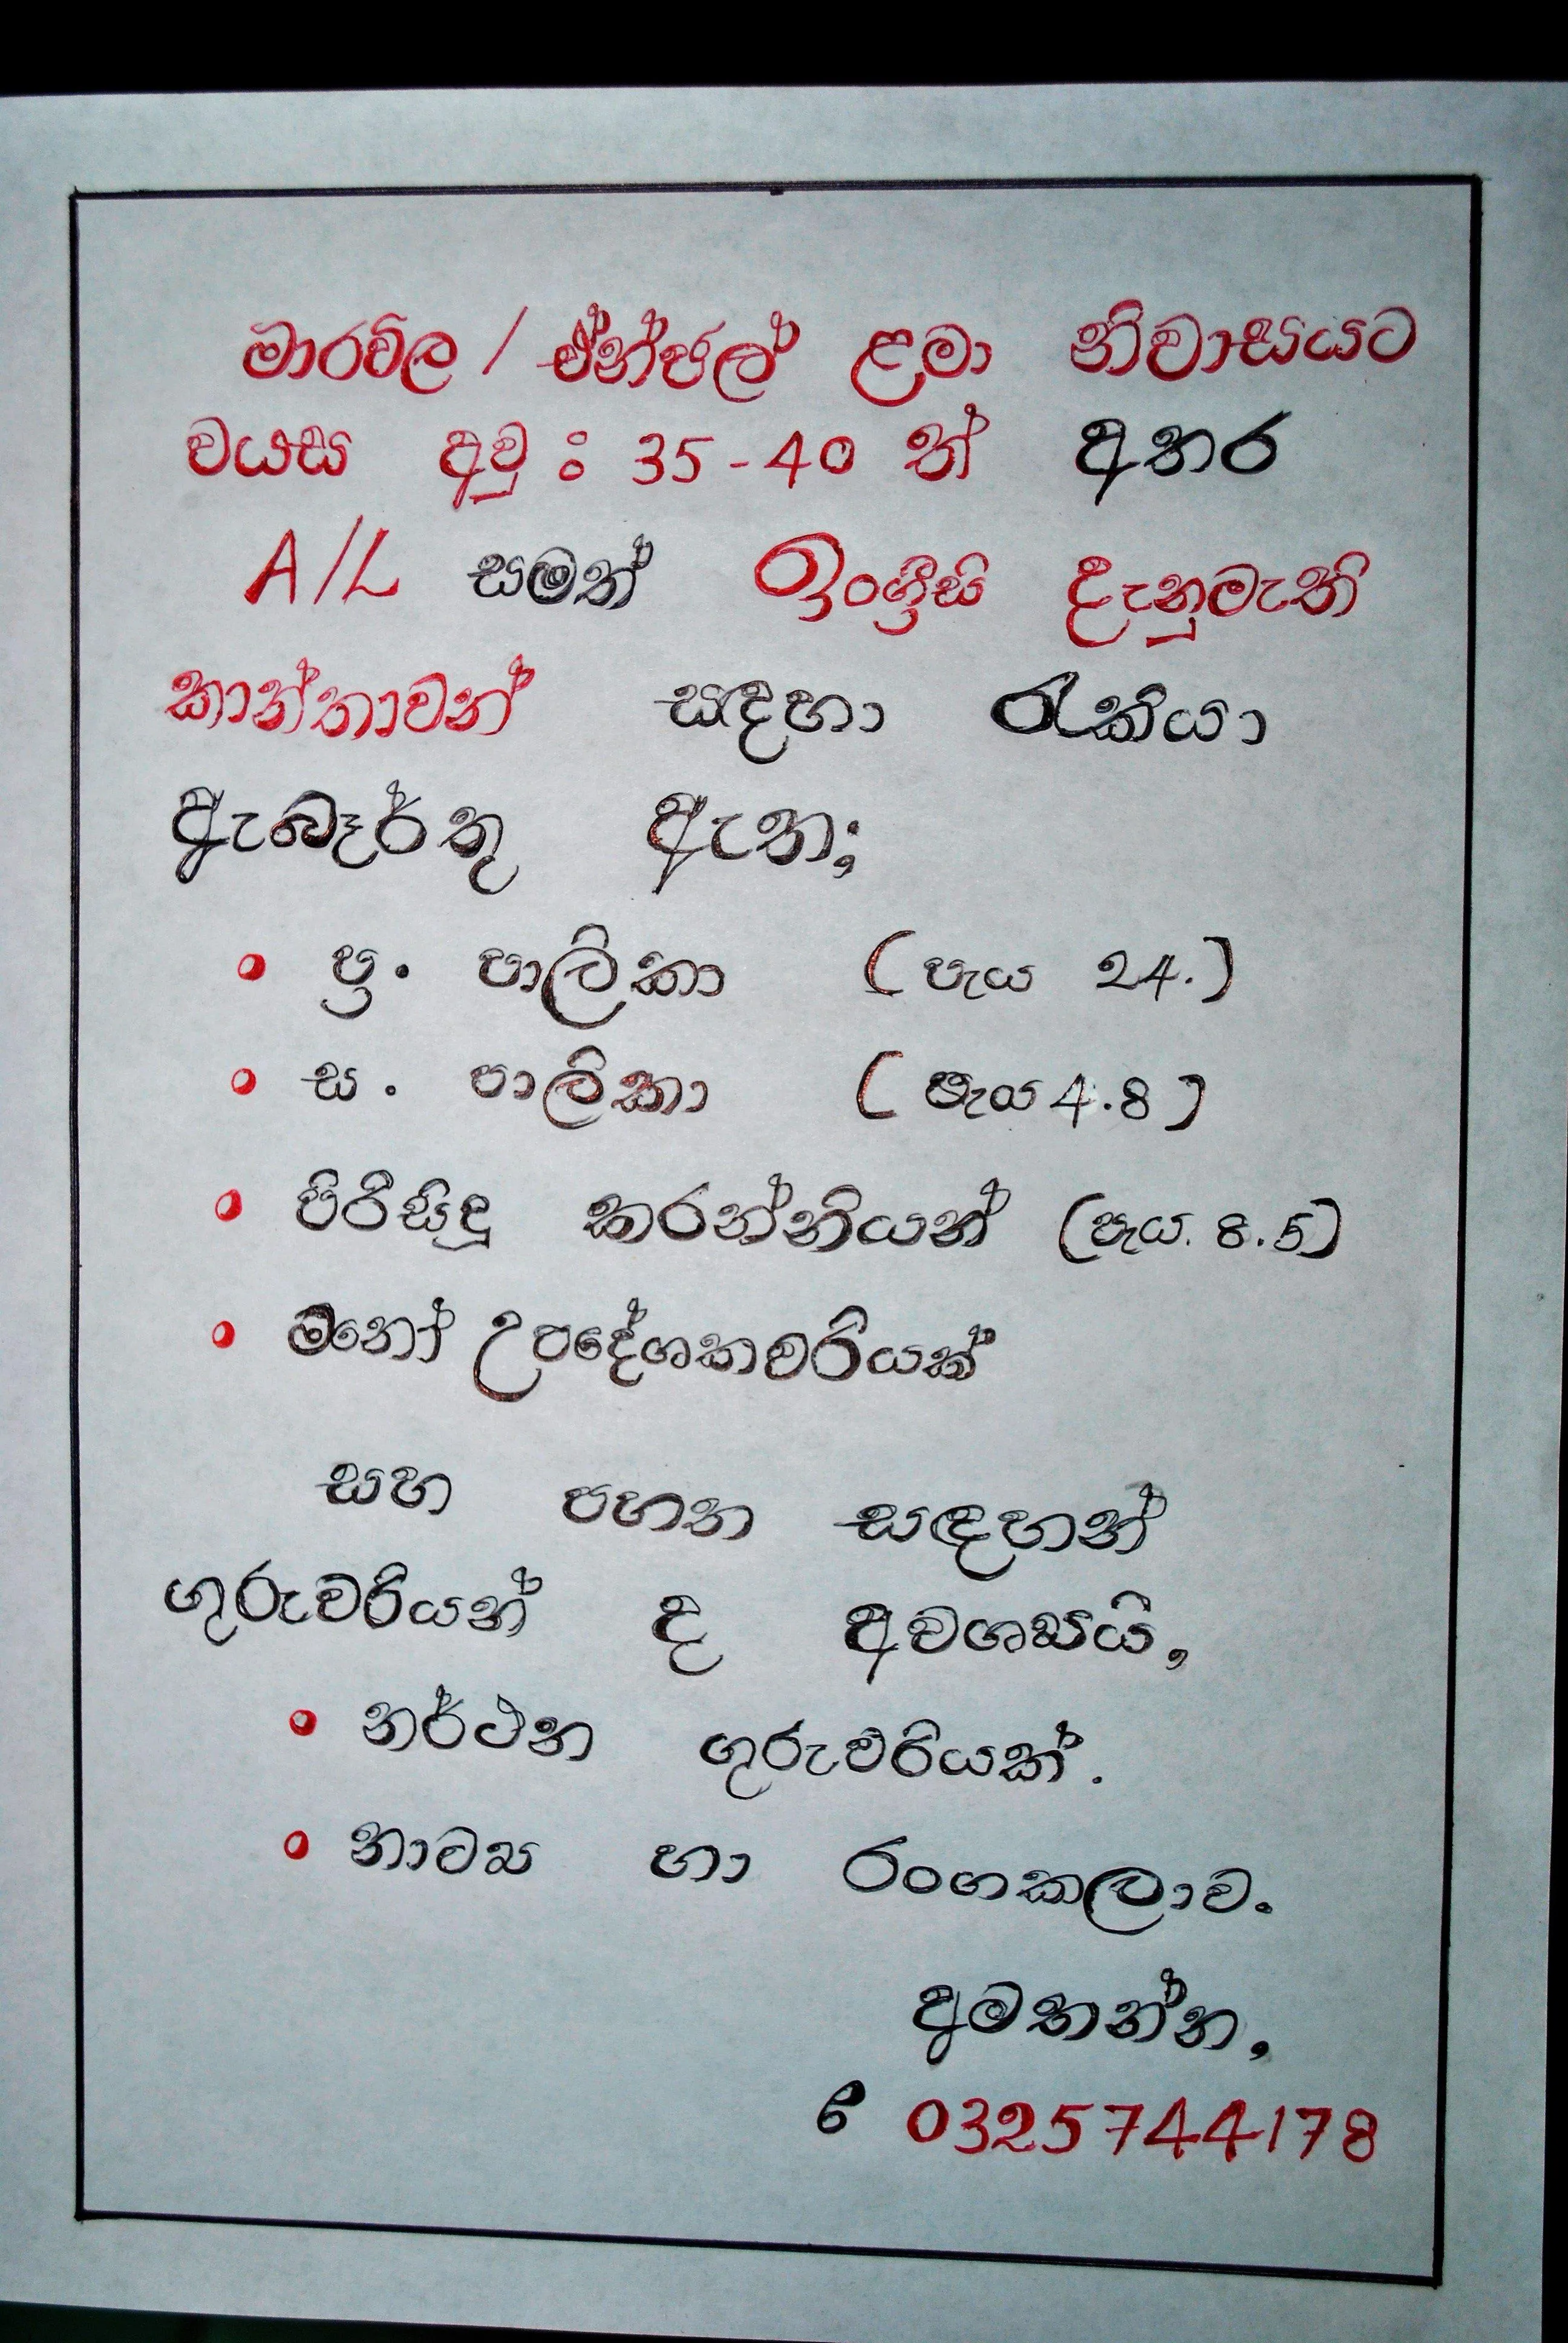 මාරවිල / ඒන්ජල් ළමා නිවාසයට
වයස අවු : 35-40 ත් අතර
A/L සමත් ඉංග්‍රීසි දැනුමැති
කාන්තාවන් සඳහා රැකියා
ඇබෑර්තු ඇත;
• ප්‍ර. පාලිකා (පැය 24.)
• ස. පාලිකා (පැය 4.8)
• පිරිසිදු කරන්නියන් (පැය. 8.5)
• මනෝ උපදේශකවරියක්
සහ පහත සඳහන්
ගුරුවරියන් ද අවශ්‍යයි,
• නර්ථන ගුරුවරියක්.
• නාට්‍ය හා රංගකලාව.
අමතන්න,
0325744178